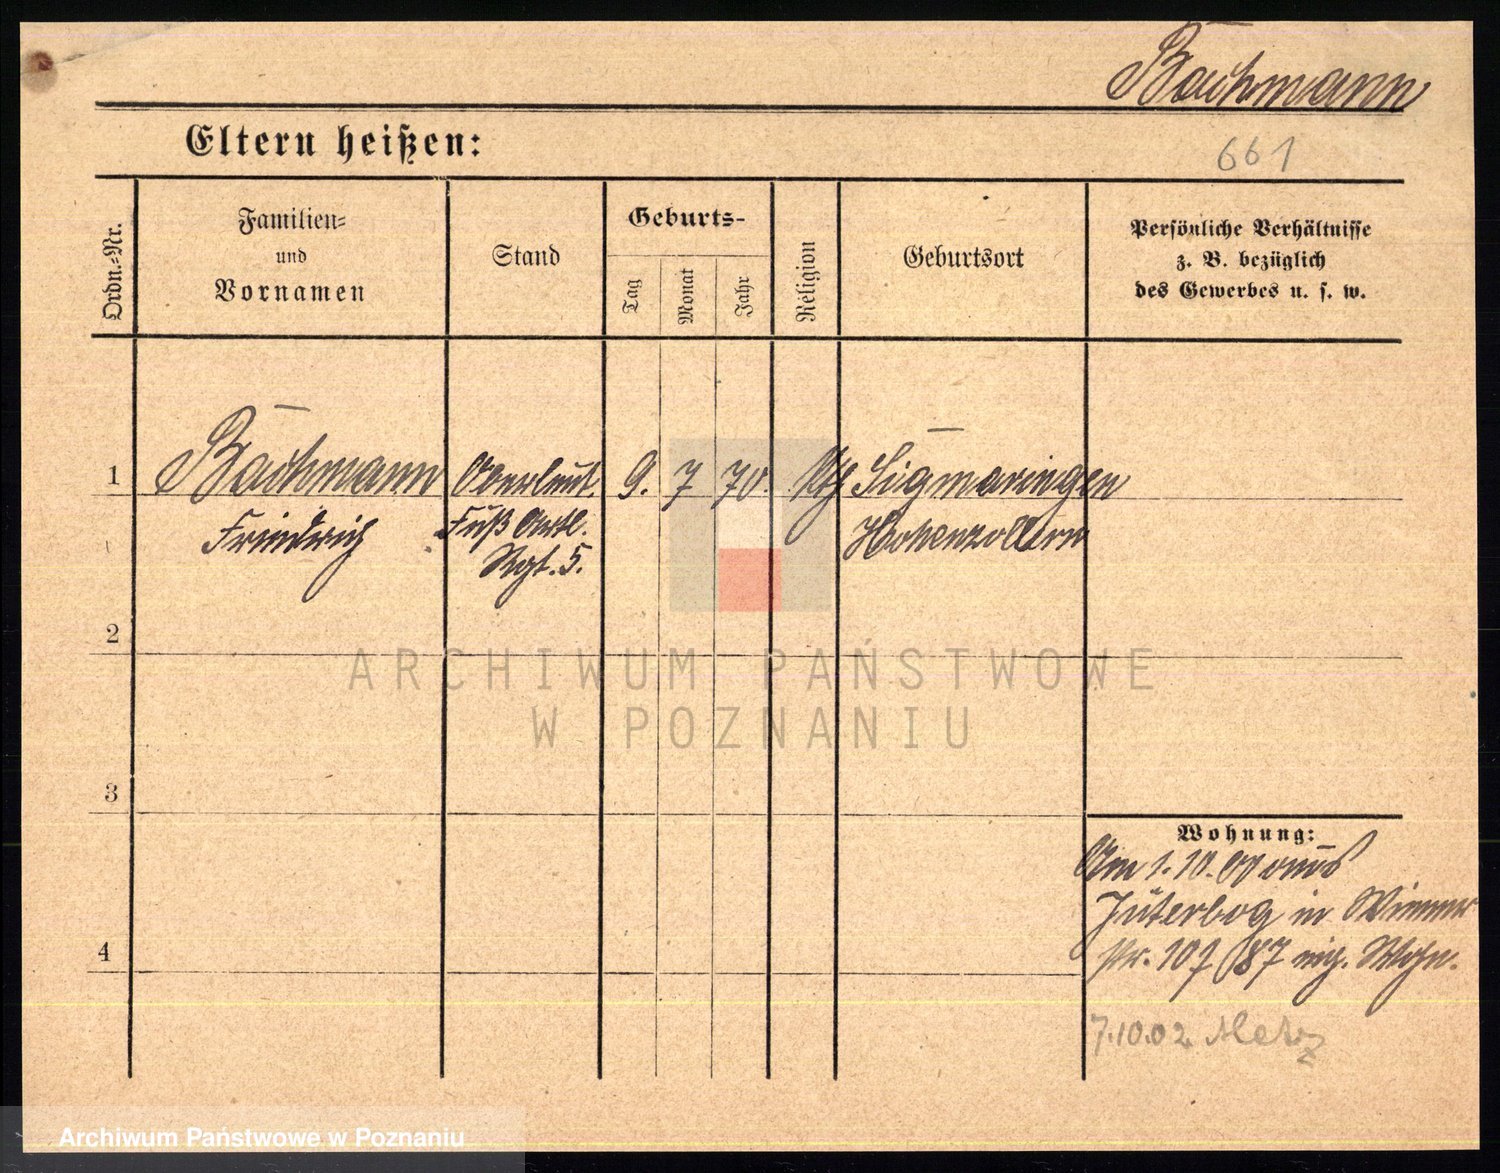 Bachmann
Eltern heißen:
661
Ordn.-Nr.
Familien-
und
Vornamen
Stand
Geburts-
Tag
Monat
Jahr
Religion
Geburtsort
Persönliche Verhältnisse
z. B. bezüglich
des Gewerbes u. s. w.
1 Bachmann Oberleut. 9. 7 70. Kth Sigmaringen
Friedrich Fuß Artl. Hohenzollern
Rgt. 5.
2
ARCHIWUM PAŃSTWOWE
W POZNANIU
3
Wohnung:
Am 1.10.00 aus
Jüterbog in
4
Nr. 107/87 eig. Wohn.
7.10.02 Metz
Archiwum Państwowe w Poznaniu